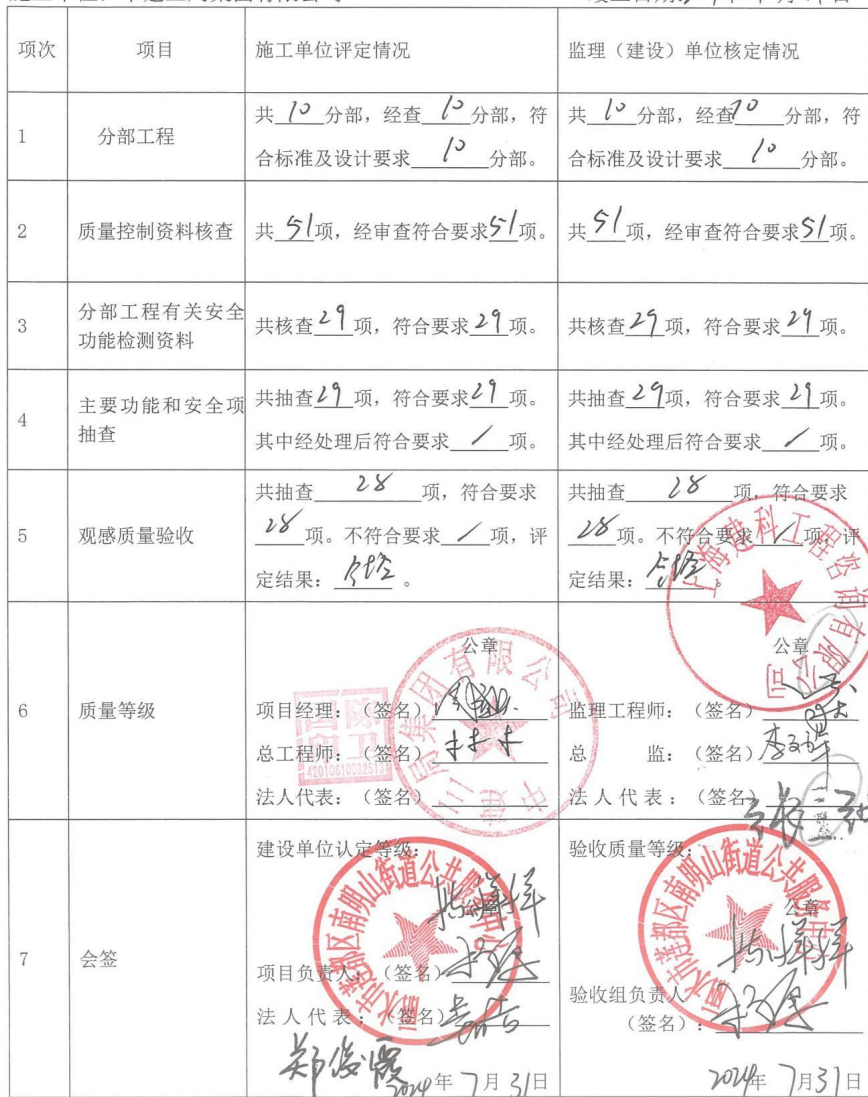 项次 项目 施工单位评定情况 监理（建设）单位核定情况
1 分部工程
共 10 分部，经查 10 分部，符
合标准及设计要求 10 分部。
共 10 分部，经查 10 分部，符
合标准及设计要求 10 分部。
2 质量控制资料核查 共 51 项，经审查符合要求 51 项。 共 51 项，经审查符合要求 51 项。
3 分部工程有关安全
功能检测资料
共核查 29 项，符合要求 29 项。 共核查 29 项，符合要求 29 项。
4 主要功能和安全项
抽查
共抽查 29 项，符合要求 29 项。
其中经处理后符合要求 / 项。
共抽查 29 项，符合要求 29 项。
其中经处理后符合要求 / 项。
5 观感质量验收
共抽查 28 项，符合要求
28 项。不符合要求 / 项，评
定结果： 合格 。
共抽查 28 项，符合要求
28 项。不符合要求 / 项，评
定结果： 合格 。
上海建科工程咨询有限公司
6 质量等级
公章
项目经理：（签名）
总工程师：（签名）
法人代表：（签名）
局集团有限公司
公章
监理工程师：（签名）
总 监：（签名）
法人代表：（签名）
7 会签
建设单位认定等级：
公章
项目负责人：（签名）
法人代表：（签名）
郑俊霞
2024年 7月 31日
丽水市莲都区南明山街道公共服务中心
验收质量等级：
公章
验收组负责人
（签名）：
2024年 7月31日
丽水市莲都区南明山街道公共服务中心